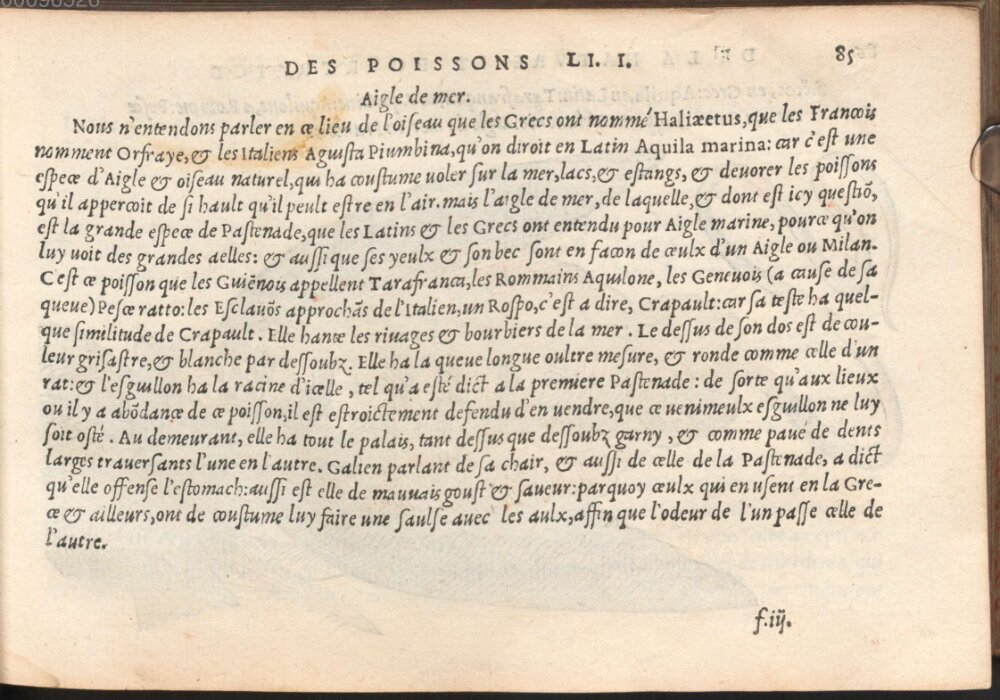 00096526
DES POISSONS LI. I. 85
Aigle de mer.
Nous n'entendons parler en ce lieu de l'oiſeau que les Grecs ont nommé Haliæetus, que les Francois
nomment Orfraye, & les Italiens Aguiſta Piumbina, qu'on diroit en Latin Aquila marina: car c'eſt une
eſpece d'Aigle & oiſeau naturel, qui ha couſtume voler ſur la mer, lacs, & eſtangs, & devorer les poiſſons
qu'il appercoit de ſi hault qu'il peult eſtre en l'air. mais l'aigle de mer, de laquelle, & dont eſt icy queſtiõ,
eſt la grande eſpece de Paſtenade, que les Latins & les Grecs ont entendu pour Aigle marine, pource qu'on
luy voit des grandes aelles: & auſſi que ſes yeulx & ſon bec ſont en facon de ceulx d'un Aigle ou Milan.
C'eſt ce poiſſon que les Guiẽnois appellent Tarafranca, les Rommains Aquilone, les Genevois (a cauſe de ſa
queue) Peſce ratto: les Eſclavõs approchãs de l'Italien, un Roſpo, c'eſt a dire, Crapault: car ſa teſte ha quel-
que ſimilitude de Crapault. Elle hante les rivages & bourbiers de la mer. Le deſſus de ſon dos eſt de cou-
leur griſaſtre, & blanche par deſſoubz. Elle ha la queue longue oultre meſure, & ronde comme celle d'un
rat: & l'eſguillon ha la racine d'icelle, tel qu'a eſté dict a la premiere Paſtenade: de ſorte qu'aux lieux
ou il y a abõdance de ce poiſſon, il eſt eſtroictement defendu d'en uendre, que ce uenimeulx eſguillon ne luy
ſoit oſté. Au demeurant, elle ha tout le palais, tant deſſus que deſſoubz garny, & comme paué de dents
larges traverſants l'une en l'autre. Galien parlant de ſa chair, & auſſi de celle de la Paſtenade, a dict
qu'elle offenſe l'eſtomach: auſſi eſt elle de mauvais gouſt & ſaveur: parquoy ceulx qui en uſent en la Gre-
ce & ailleurs, ont de couſtume luy faire une ſaulſe avec les aulx, affin que l'odeur de l'un paſſe celle de
l'autre.
f.iij.